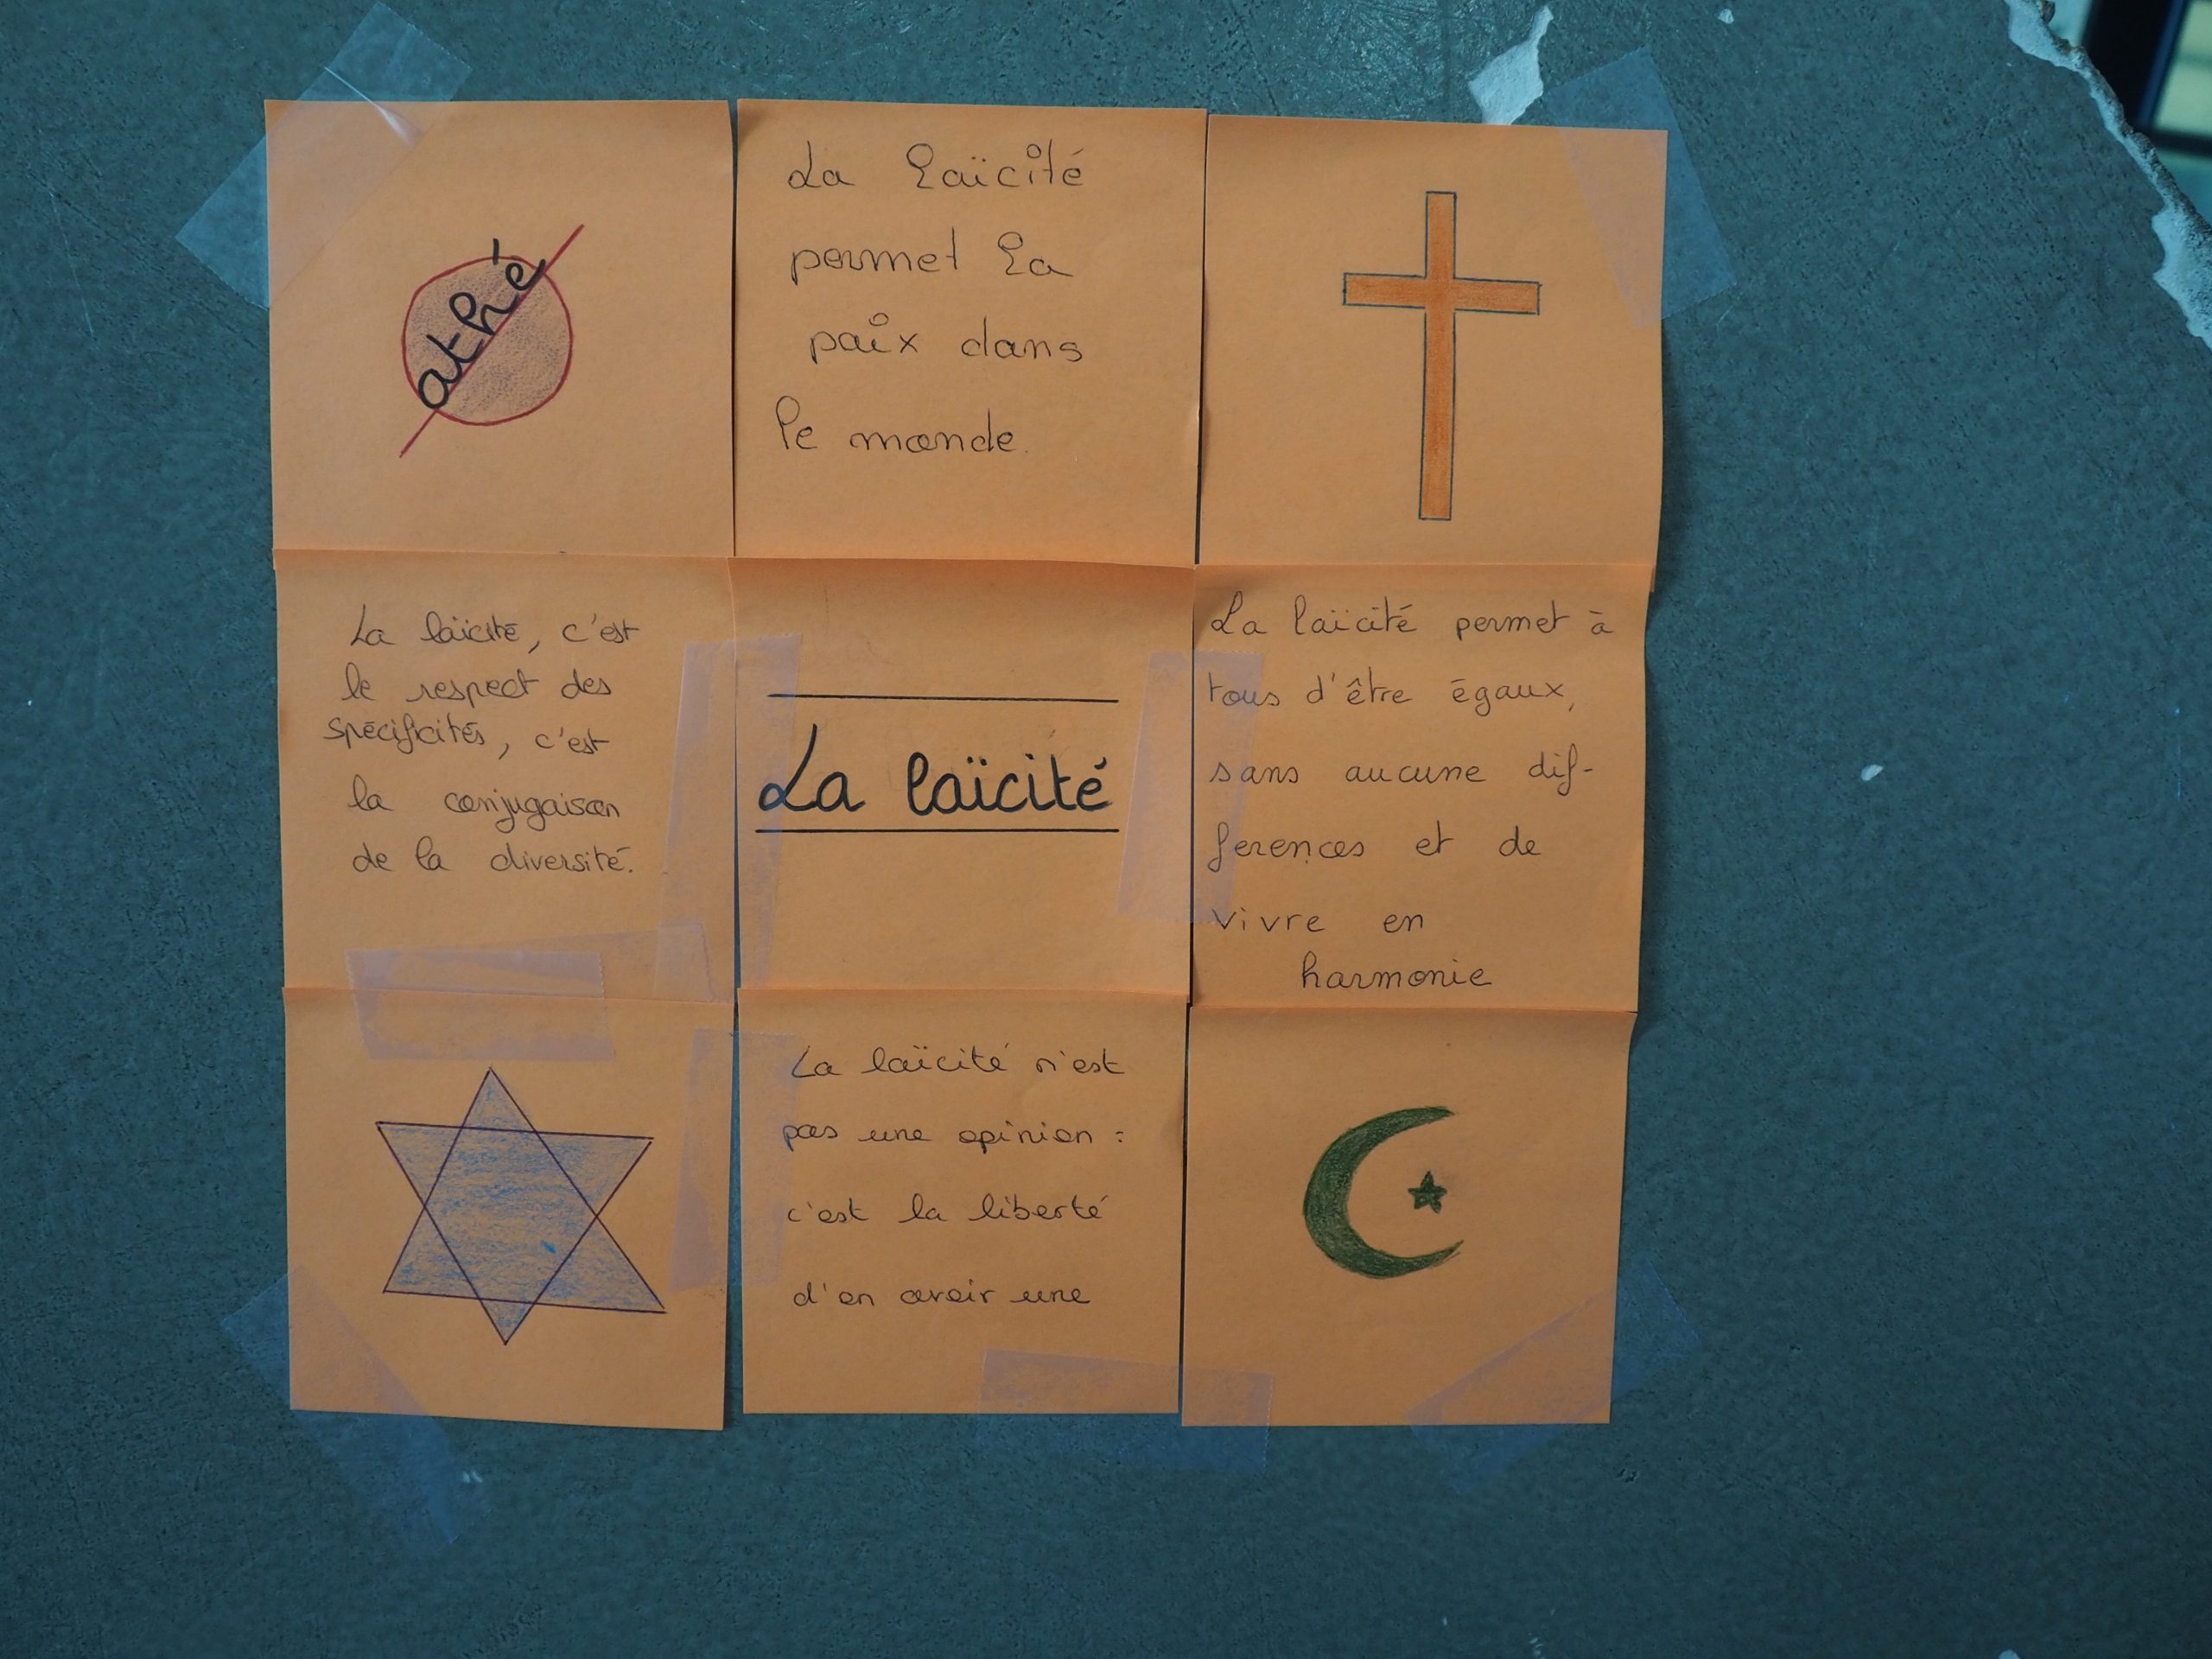 athé
La laïcité
permet la
paix dans
le monde.
La laïcité, c'est
le respect des
spécificités, c'est
la conjugaison
de la diversité.
La laïcité
La laïcité permet à
tous d'être égaux,
sans aucune dif-
ferences et de
vivre en
harmonie
La laïcité n'est
pas une opinion :
c'est la liberté
d'en avoir une